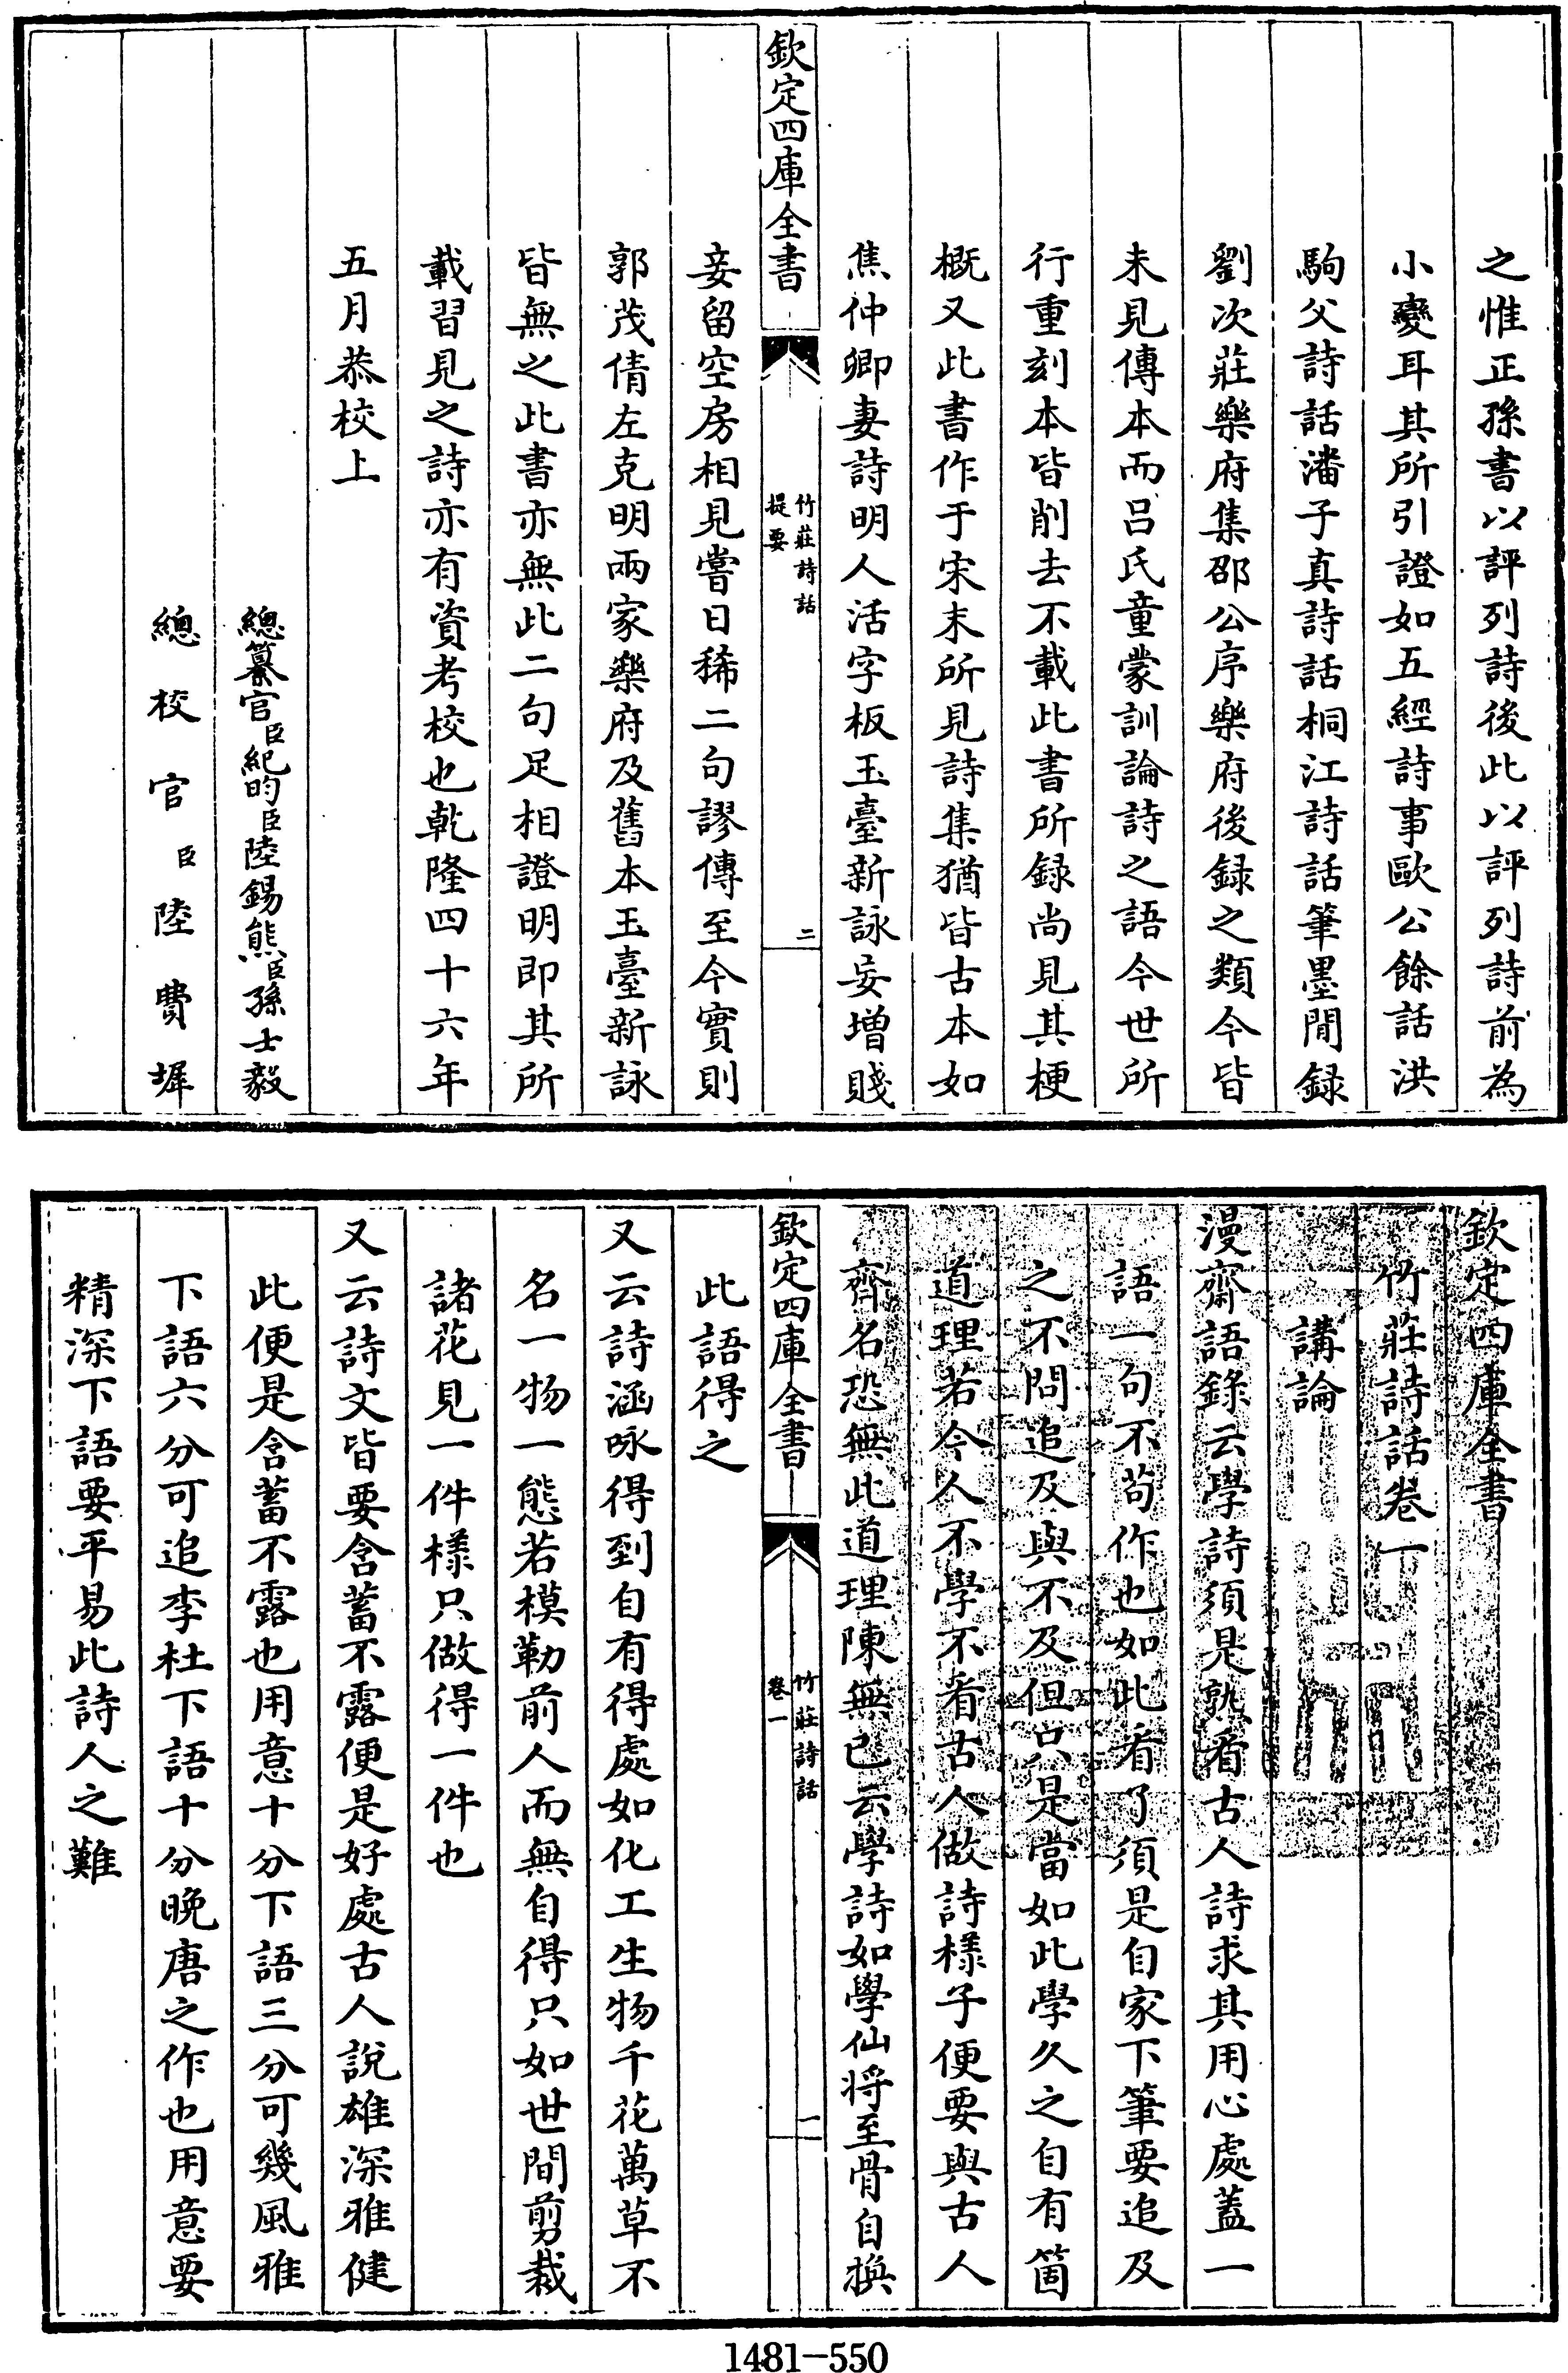 之惟正孫書以評列詩後此以評列詩前為
小變耳其所引證如五經詩事歐公餘話洪
駒父詩話潘子真詩話桐江詩話筆墨閒録
劉次莊樂府集邵公序樂府後録之類今皆
未見傳本而呂氏童蒙訓論詩之語今世所
行重刻本皆削去不載此書所録尚見其梗
概又此書作于宋末所見詩集猶皆古本如
焦仲卿妻詩明人活字板玉臺新詠妄増賤
欽定四庫全書
竹莊詩話
提要
二
妾留空房相見嘗日稀二句謬傳至今實則
郭茂倩左克明兩家樂府及舊本玉臺新詠
皆無之此書亦無此二句足相證明即其所
載習見之詩亦有資考校也乾隆四十六年
五月恭校上
總纂官臣紀昀臣陸錫熊臣孫士毅
總校官臣陸費墀
欽定四庫全書
竹莊詩話卷一
講論
漫齋語錄云學詩須是熟看古人詩求其用心處蓋一
語一句不苟作也如此看了須是自家下筆要追及
之不問追及與不及但只是當如此學久之自有箇
道理若今人不學不看古人做詩様子便要與古人
齊名恐無此道理陳無已云學詩如學仙将至骨自換
欽定四庫全書
竹莊詩話
卷一
一
此語得之
又云詩涵咏得到自有得處如化工生物千花萬草不
名一物一態若模勒前人而無自得只如世間剪裁
諸花見一件様只做得一件也
又云詩文皆要含蓄不露便是好處古人說雄深雅健
此便是含蓄不露也用意十分下語三分可幾風雅
下語六分可追李杜下語十分晚唐之作也用意要
精深下語要平易此詩人之難
1481-550